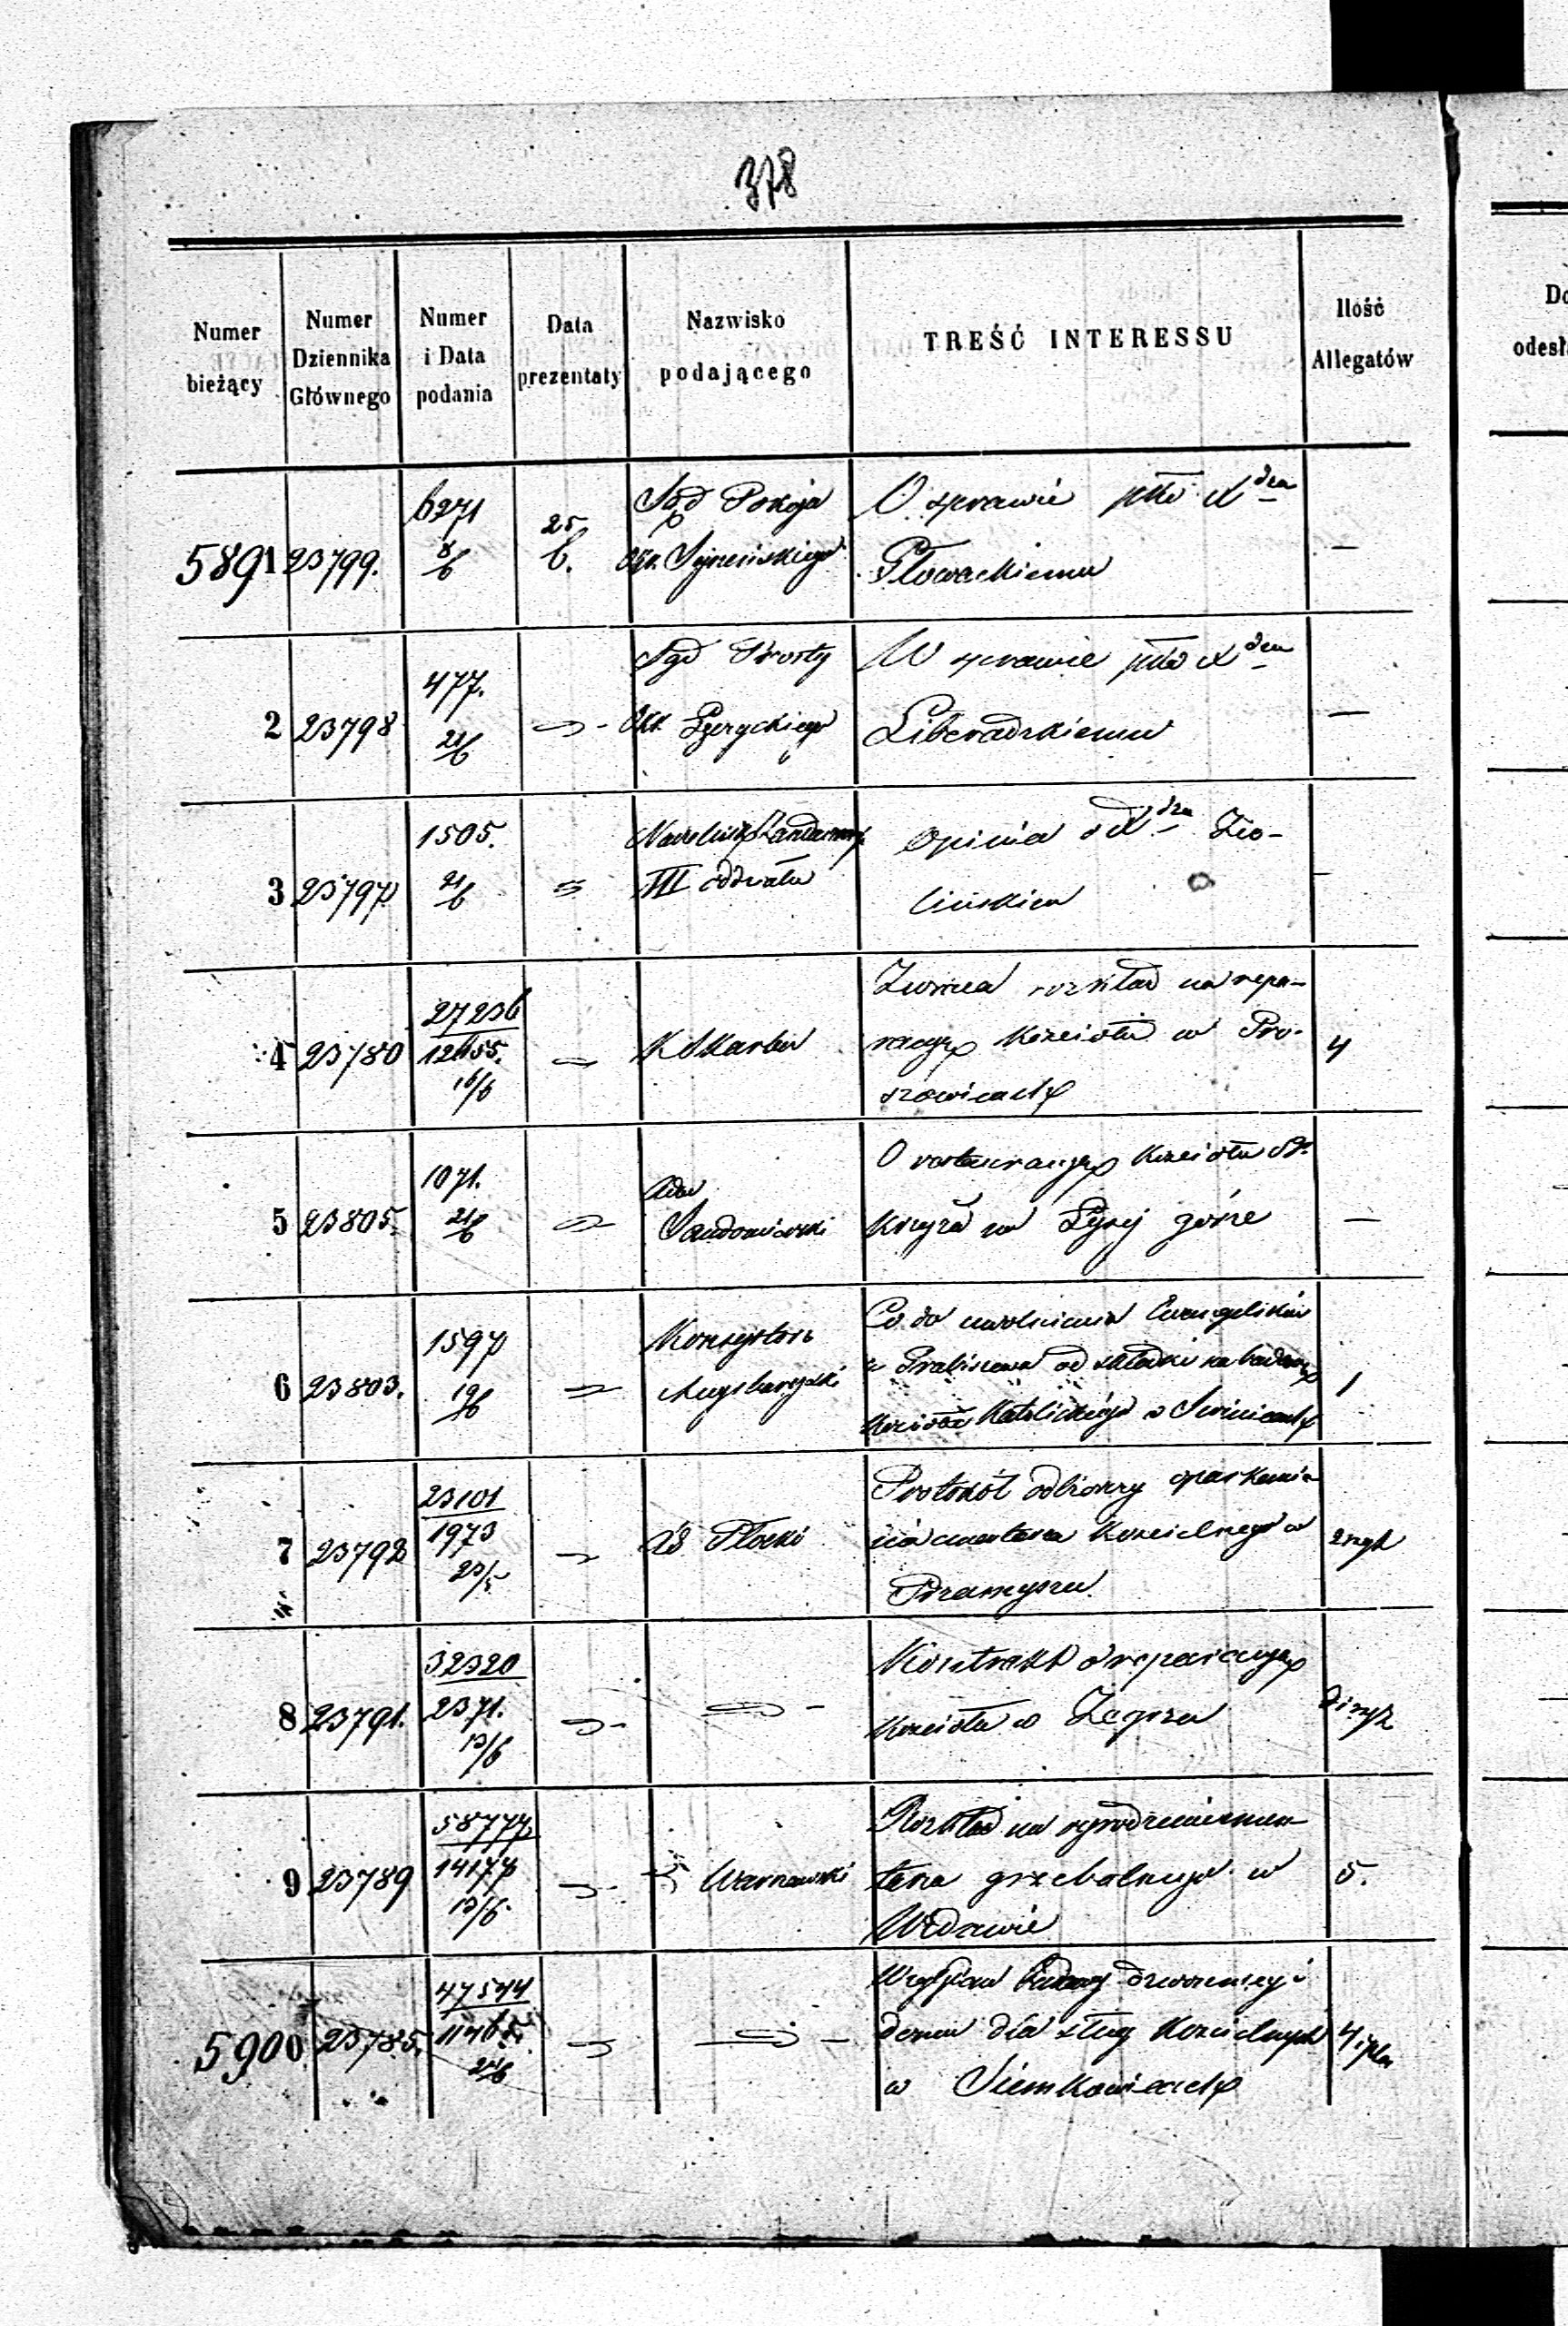 378
Numer
bieżący
Numer
Dziennika
Głównego
Numer
i Data
podania
Data
prezentaty
Nazwisko
podającego
TREŚĆ INTERESSU
Ilość
Allegatów
Do
odesł
5891 23799. 6271 8/6 25/6. Sąd Pokoju
Okr. Sejneńskiego
O sprawie pko X dzu
Głowackiemu
—
2 23798 477. 21/6 Sąd Prosty
Okr. Łęczyckiego
W sprawie pko X dzu
Liberadzkiemu
—
3 23797 1505. 21/6 Naczelnik Żandarm.
III oddziału
Opinia o X dzu Zio-
lińskim
—
4 23780 27236
12655.
16/6
K Skarbu
Zwraca rozkład na repa-
racyę kościoła w Pro-
szowicach
4
5 23805. 1071. 21/6 Adm
Sandomierski
O restauracyę kościoła Sgo
Krzyża na Łysej górze
—
6 23803. 1597 19/6 Konsystorz
Augsburgski
Co do uwolnienia Ewangelików
z Grabiszewa od składki na budowę
kościoła Katolickiego w Świnicach
1
7 23792 23101
1973
23/5
RG Płocki
Protokół odbiorczy oparkanie-
nia cmentarza kościelnego w
Pozamyszu
8 23791. 32320
2371.
13/6
Kontrakt o reparacyę
kościoła w Zegrzu
9 23789 58777
14177
13/6
Warszawski
Rozkład na ogrodzenie cmen-
tarza grzebalnego w
Widawie
5.
5900 23785. 47544
11465.
21/6
domu dla sług kościelnych
w Siemkowicach